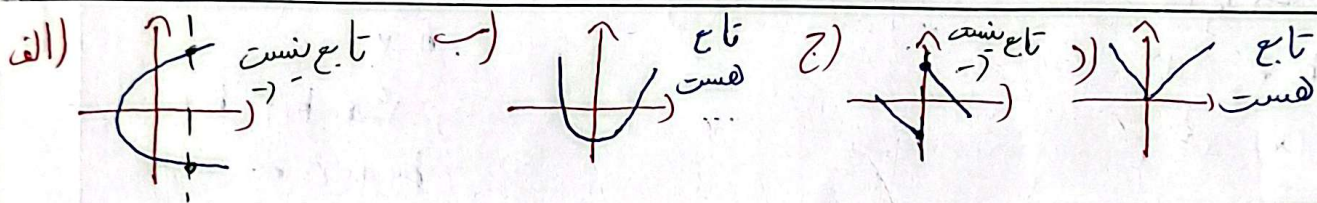 الف) تابع نیست
ب) تابع هست ...
ج) تابع نیست
د) تابع هست